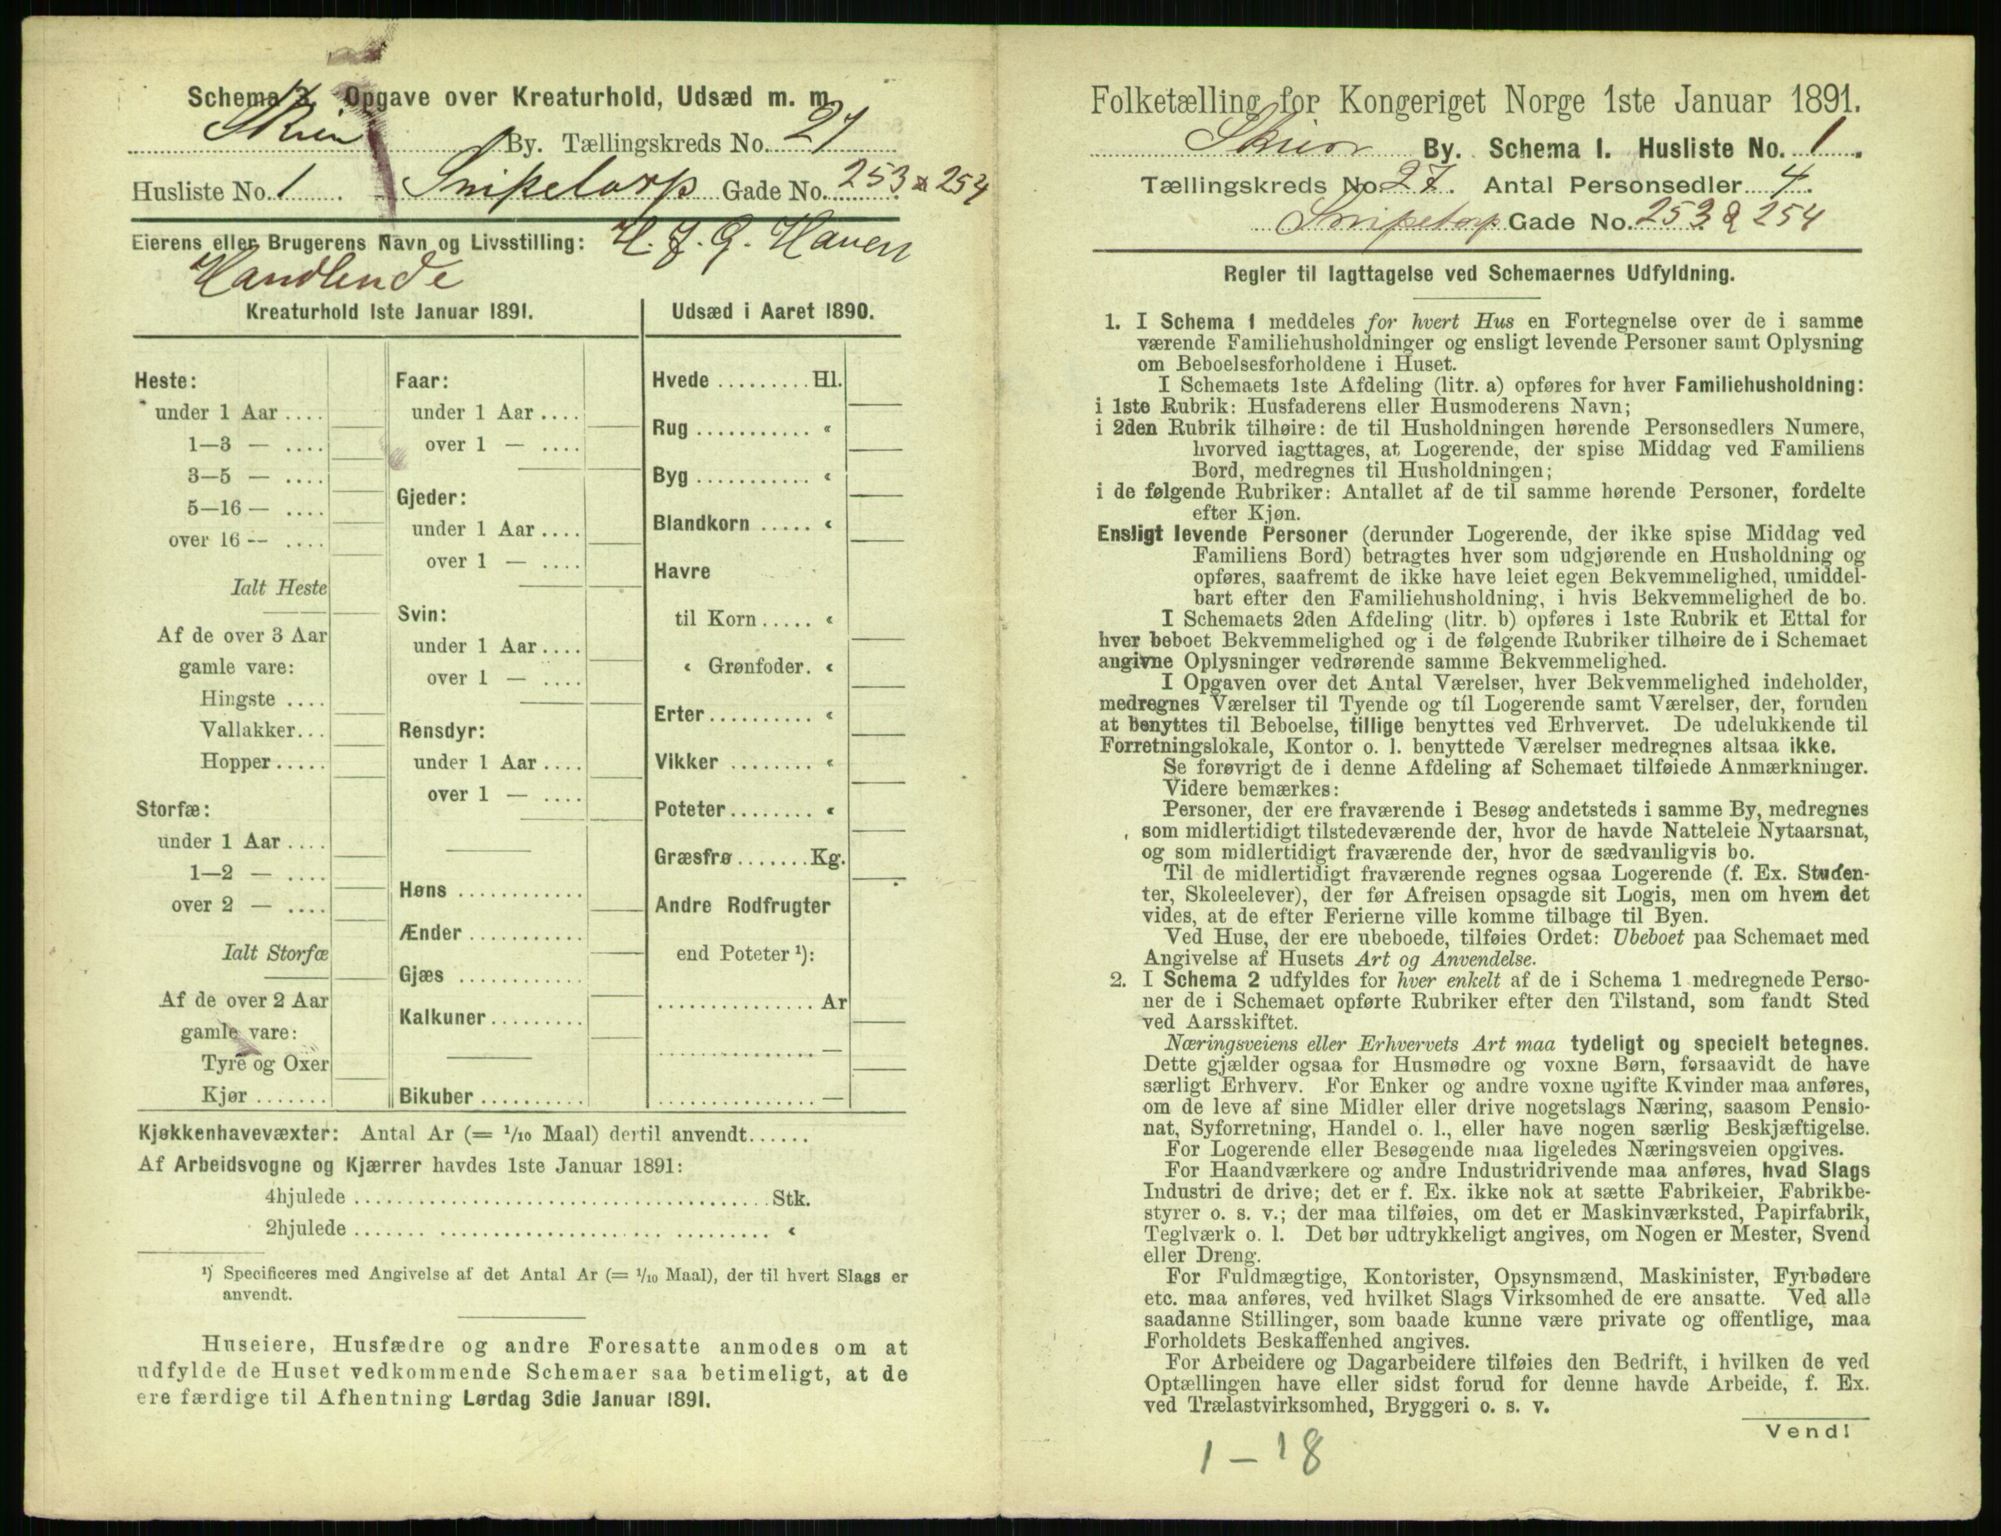 Schema 3. Opgave over Kreaturhold, Udsæd m. m.
Skien By. Tællingskreds No. 27
Husliste No. 1 . – Snipetorp Gade No. 253 & 254
Eierens eller Brugerens Navn og Livsstilling: H. J. G. Hauen
Handlende
Kreaturhold 1ste Januar 1891.
Heste:
under 1 Aar ....
1—3 — ....
3—5 — ....
5—16 — ....
over 16 — ....
Ialt Heste
Af de over 3 Aar
gamle vare:
Hingste ....
Vallakker...
Hopper .....
Storfæ:
under 1 Aar ....
1—2 — ....
over 2 — ....
Ialt Storfæ
Af de over 2 Aar
gamle vare:
Tyre og Oxer
Kjør .......
Faar:
under 1 Aar ....
over 1 — ....
Gjeder:
under 1 Aar ....
over 1 — ....
Svin:
under 1 Aar ....
over 1 — ....
Rensdyr:
under 1 Aar ....
over 1 — ....
Høns ...........
Ænder ..........
Gjæs ...........
Kalkuner ........
Bikuber .........
Udsæd i Aaret 1890.
Hvede ......... Hl.
Rug ........... «
Byg ........... «
Blandkorn ..... «
Havre
til Korn ..... «
« Grønfoder. «
Erter .......... «
Vikker ........ «
Poteter ........ «
Græsfrø ....... Kg.
Andre Rodfrugter
end Poteter ¹):
............... Ar
............... —
............... —
Kjøkkenhavevæxter: Antal Ar (= 1/10 Maal) dertil anvendt......
Af Arbeidsvogne og Kjærrer havdes 1ste Januar 1891:
4hjulede ........................................ Stk.
2hjulede ........................................ «
¹) Specificeres med Angivelse af det Antal Ar (= 1/10 Maal), der til hvert Slags er
anvendt.
Huseiere, Husfædre og andre Foresatte anmodes om at
udfylde de Huset vedkommende Schemaer saa betimeligt, at de
ere færdige til Afhentning Lørdag 3die Januar 1891.
Folketælling for Kongeriget Norge 1ste Januar 1891.
Skien By. Schema 1. Husliste No. 1 .
Tællingskreds No. 27. Antal Personsedler 4.
Snipetorp Gade No. 253 & 254
Regler til Iagttagelse ved Schemaernes Udfyldning.
1. I Schema 1 meddeles for hvert Hus en Fortegnelse over de i samme
værende Familiehusholdninger og ensligt levende Personer samt Oplysning
om Beboelsesforholdene i Huset.
I Schemaets 1ste Afdeling (litr. a) opføres for hver Familiehusholdning:
i 1ste Rubrik: Husfaderens eller Husmoderens Navn;
i 2den Rubrik tilhøire: de til Husholdningen hørende Personsedlers Numere,
hvorved iagttages, at Logerende, der spise Middag ved Familiens
Bord, medregnes til Husholdningen;
i de følgende Rubriker: Antallet af de til samme hørende Personer, fordelte
efter Kjøn.
Ensligt levende Personer (derunder Logerende, der ikke spise Middag ved
Familiens Bord) betragtes hver som udgjørende en Husholdning og
opføres, saafremt de ikke have leiet egen Bekvemmelighed, umiddel-
bart efter den Familiehusholdning, i hvis Bekvemmelighed de bo.
I Schemaets 2den Afdeling (litr. b) opføres i 1ste Rubrik et Ettal for
hver beboet Bekvemmelighed og i de følgende Rubriker tilhøire de i Schemaet
angivne Oplysninger vedrørende samme Bekvemmelighed.
I Opgaven over det Antal Værelser, hver Bekvemmelighed indeholder,
medregnes Værelser til Tyende og til Logerende samt Værelser, der, foruden
at benyttes til Beboelse, tillige benyttes ved Erhvervet. De udelukkende til
Forretningslokale, Kontor o. l. benyttede Værelser medregnes altsaa ikke.
Se forøvrigt de i denne Afdeling af Schemaet tilføiede Anmærkninger.
Videre bemærkes:
Personer, der ere fraværende i Besøg andetsteds i samme By, medregnes
som midlertidigt tilstedeværende der, hvor de havde Natteleie Nytaarsnat,
og som midlertidigt fraværende der, hvor de sædvanligvis bo.
Til de midlertidigt fraværende regnes ogsaa Logerende (f. Ex. Studen-
ter, Skoleelever), der før Afreisen opsagde sit Logis, men om hvem det
vides, at de efter Ferierne ville komme tilbage til Byen.
Ved Huse, der ere ubeboede, tilføies Ordet: Ubeboet paa Schemaet med
Angivelse af Husets Art og Anvendelse.
2. I Schema 2 udfyldes for hver enkelt af de i Schema 1 medregnede Perso-
ner de i Schemaet opførte Rubriker efter den Tilstand, som fandt Sted
ved Aarsskiftet.
Næringsveiens eller Erhvervets Art maa tydeligt og specielt betegnes.
Dette gjælder ogsaa for Husmødre og voxne Børn, forsaavidt de have
særligt Erhverv. For Enker og andre voxne ugifte Kvinder maa anføres,
om de leve af sine Midler eller drive nogetslags Næring, saasom Pensio-
nat, Syforretning, Handel o. l., eller have nogen særlig Beskjæftigelse.
For Logerende eller Besøgende maa ligeledes Næringsveien opgives.
For Haandværkere og andre Industridrivende maa anføres, hvad Slags
Industri de drive; det er f. Ex. ikke nok at sætte Fabrikeier, Fabrikbe-
styrer o. s. v.; der maa tilføies, om det er Maskinværksted, Papirfabrik,
Teglværk o. l. Det bør udtrykkeligt angives, om Nogen er Mester, Svend
eller Dreng.
For Fuldmægtige, Kontorister, Opsynsmænd, Maskinister, Fyrbødere
etc. maa anføres, ved hvilket Slags Virksomhed de ere ansatte. Ved alle
saadanne Stillinger, som baade kunne være private og offentlige, maa
Forholdets Beskaffenhed angives.
For Arbeidere og Dagarbeidere tilføies den Bedrift, i hvilken de ved
Optællingen have eller sidst forud for denne havde Arbeide, f. Ex.
ved Trælastvirksomhed, Bryggeri o. s. v.
Vend!
1 – 18